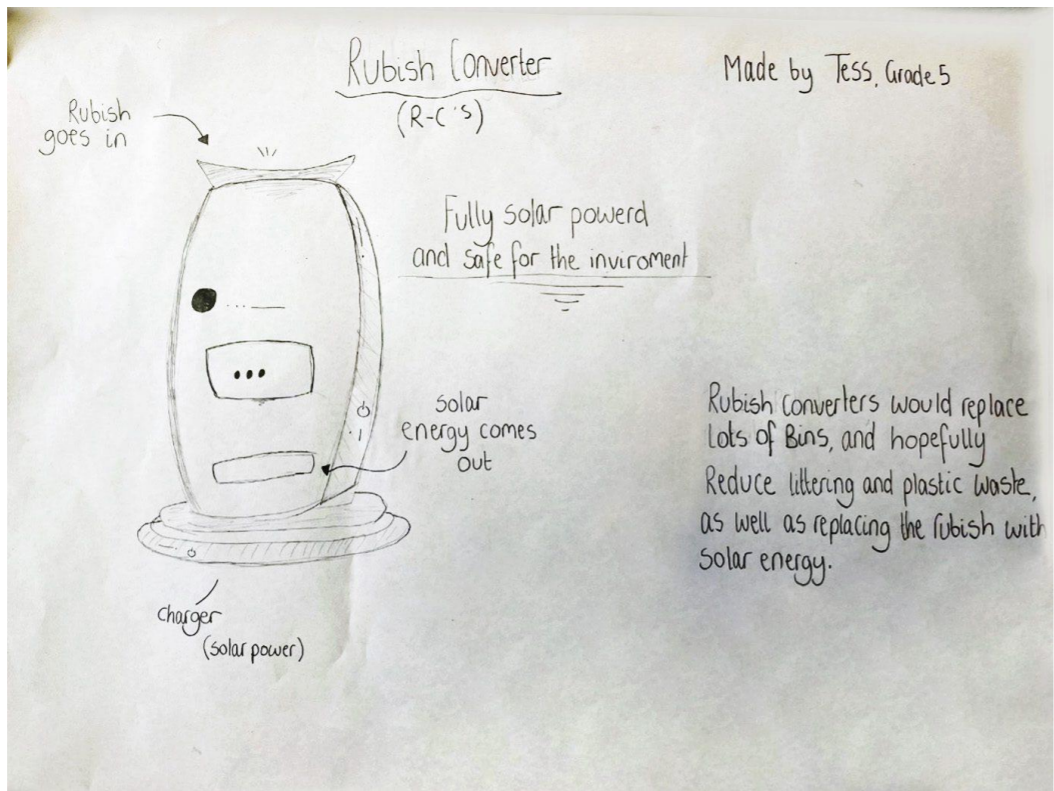 Rubish Converter
(R-C's)
Made by Tess, Grade 5
Rubish
goes in
Fully solar powerd
and safe for the inviroment
solar
energy comes
out
Rubish Converters would replace
lots of Bins, and hopefully
Reduce littering and plastic waste,
as well as replacing the rubish with
solar energy.
charger
(solar power)